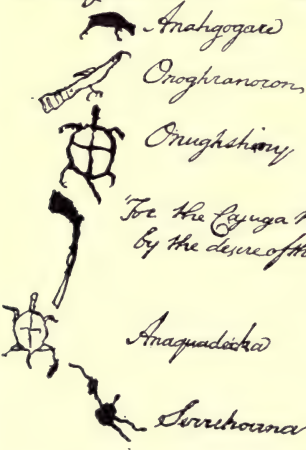 Anahgogare
Oroghranoron
Onughshiny
For the Cajuga
by the desire of th
Anaquadecka
Serrehoana